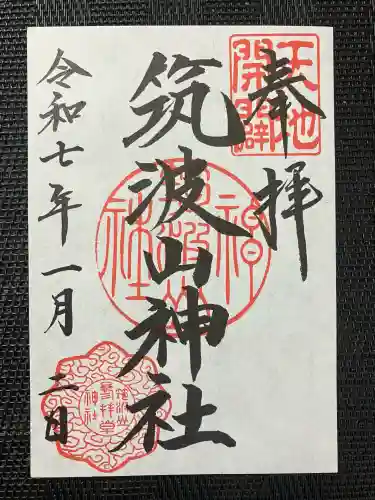 奉拝
天地
開闢
筑波山神社
筑波山
神社
令和七年一月二日
筑波山
神社
拝堂